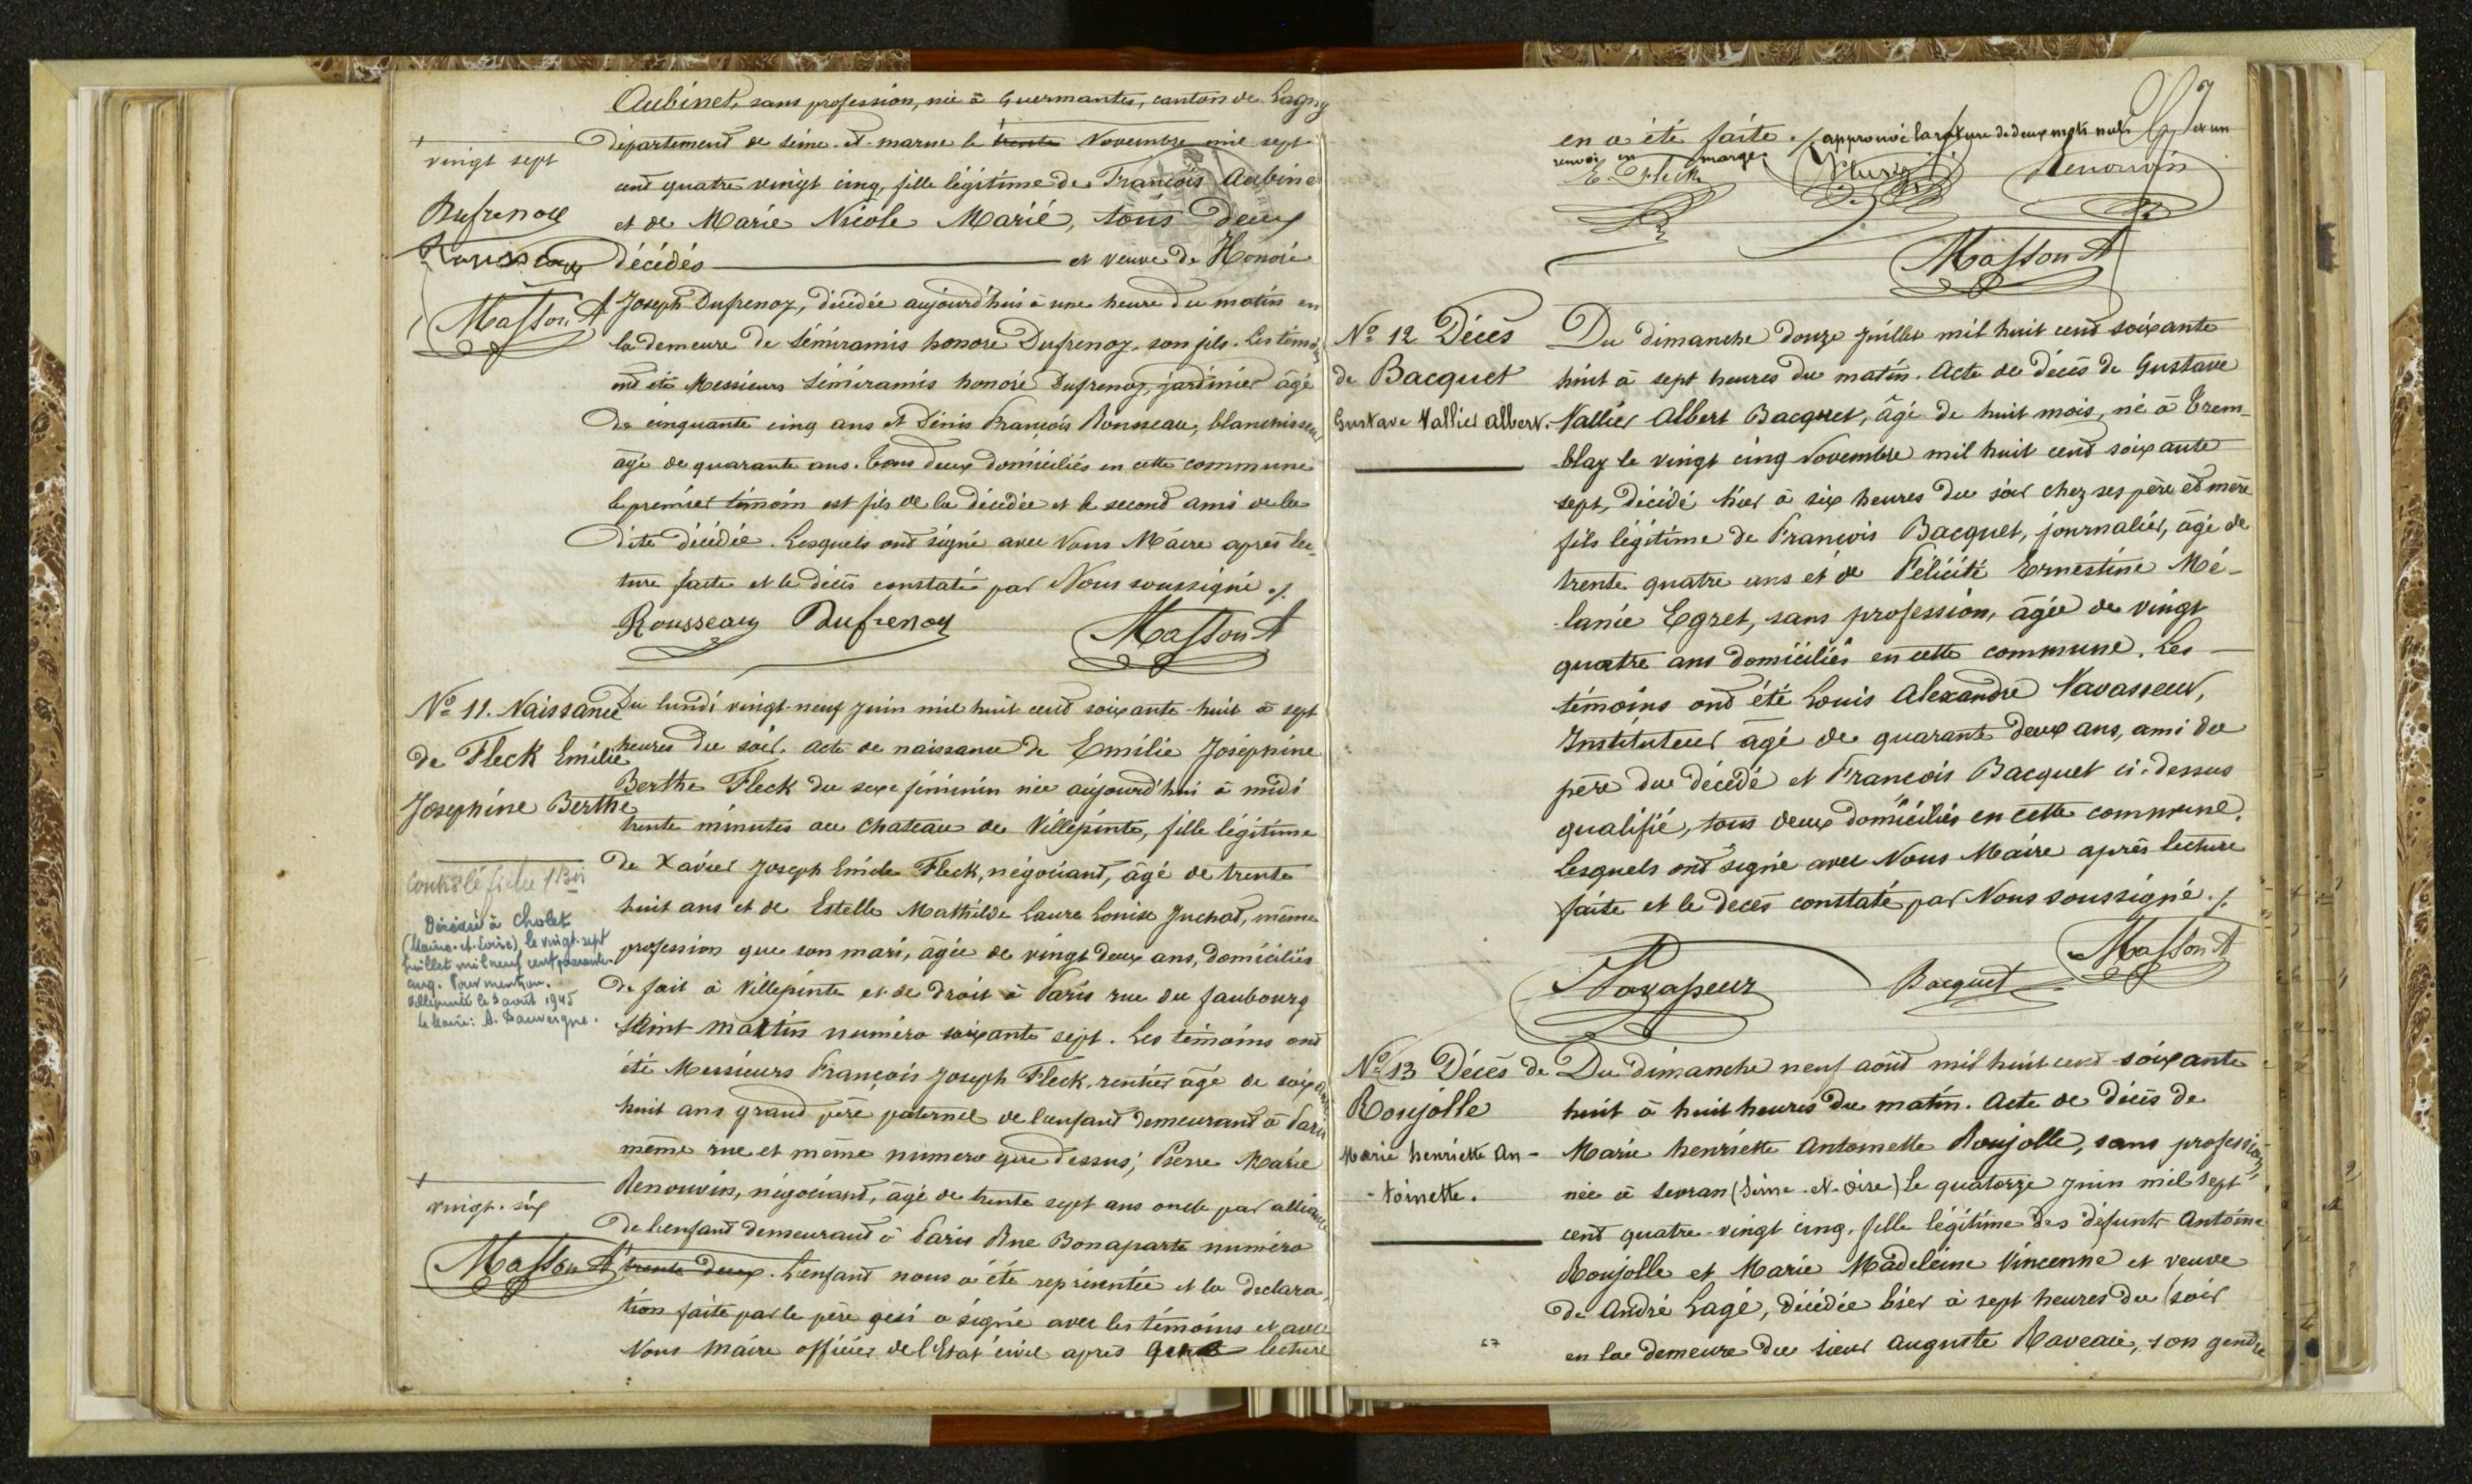 Aubinet, sans profession, née à Guermantes, canton de Lagny
département de Seine-et-marne le trente Novembre mil sept
cent quatre vingt cinq, fille légitime de François Aubine
et de Marie Nicole Marié, tous deux
décédés et veuve de Honoré
Joseph Dufrenoy, décédée aujourd'hui à une heure du matin en
la demeure de Séméramis honoré Dufrenoy, son fils. Les témoins
ont été Messieurs Séméramis honoré Dufrenoy, jardinier âgé
de cinquante cinq ans et Dénis François Rousseau, blanchisseur
âgé de quarante ans. Tous deux domiciliés en cette commune
le premier témoin est fils de la décédée et le second ami de la
dite décédée. Lesquels ont signé avec Nous Maire après lec-
ture faite et le décès constaté par Nous soussigné ./.
Rousseau Dufrenoy Masson A
+
vingt sept
Dufrenoy
Rousseau
Masson A
No 11. Naissance
de Fleck Emilie
Josephine Berthe
Du lundi vingt-neuf juin mil huit cent soixante-huit à sept
heures du soir. Acte de naissance de Emilie Joséphine
Berthe Fleck du sexe féminin née aujourd'hui à midi
trente minutes au chateau de Villepinte, fille légitime
de Xavier Joseph Emile Fleck, négociant, âgé de trente
huit ans et de Estelle Mathilde Laure Louise Juchat, même
profession que son mari, âgée de vingt deux ans, domiciliés
de fait à Villepinte et de droit à Paris rue du faubourg
Saint-Martin numéro soixante sept. Les témoins ont
été Messieurs François Joseph Fleck, rentier âgé de soixante
huit ans grand père paternel de l'enfant demeurant à Paris
même rue et même numero que dessus; Pierre Marie
Renouvin, négociant, âgé de trente sept ans oncle par alliance
de l'enfant demeurant à Paris Rue Bonaparte numéro
trente deux. L'enfant nous a été représentée et la déclara
tion faite par le père qui a signé avec les témoins et avec
Nous Maire officier de l'Etat civil après lecture
Décédée à Cholet
(Maine-et-Loire), le vingt-sept
juillet mil neuf cent quarante-
cinq. Pour mention.
Villepinte le 3 août 1945
Le Maire: A. Dauvergne.
+
vingt-six
Masson A
en a été faite ./. approuvé la rature de deux mots nuls et un
renvoi en marge.
E. Fleck Renouvin
Masson A
No 12 Décès
de Bacquet
Gustave Vallier Albert.
Du dimanche douze juillet mil huit cent soixante
huit à sept heures du matin. Acte de décès de Gustave
Vallier Albert Bacquet, âgé de huit mois, né à Trem-
blay le vingt cinq Novembre mil huit cent soixante
sept, décédé hier à six heures du soir chez ses père et mère
fils légitime de François Bacquet, journalier, âgé de
trente quatre ans et de Félicité Ernestine Mé-
lanie Egret, sans profession, âgée de vingt
quatre ans domiciliés en cette commune. Les
témoins ont été Louis Alexandre Vavasseur,
Instituteur âgé de quarante deux ans, ami du
père du décédé et François Bacquet ci-dessus
qualifié, tous deux domiciliés en cette commune.
Lesquels ont signé avec Nous Maire après lecture
faite et le décès constaté par Nous soussigné ./.
Vavasseur Bacquet Masson A
No 13 Décès de
Roujolle
Marie henriette An-
-toinette.
Du dimanche neuf août mil huit cent soixante
huit à huit heures du matin. Acte de décès de
Marie henriette Antoinette Roujolle, sans profession,
née à Sevran (Seine-et-Oise) le quatorze juin mil sept
cent quatre-vingt cinq, fille légitime des défunts Antoine
Roujolle et Marie Madeleine Vincenne et veuve
de André Lagé, décédée hier à sept heures du soir
en la demeure du sieur Auguste Raveau, son gendre